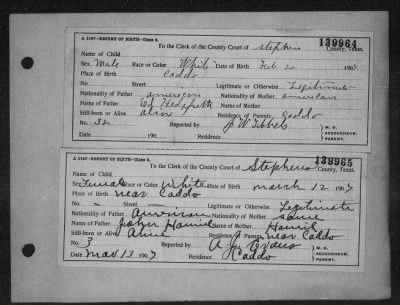 A 1197—REPORT OF BIRTH—Class 5. 139964
To the Clerk of the County Court of Stephens County, Texas.
Name of Child
Sex Male Race or Color White Date of Birth Feb 190
Place of Birth Caddo
No. Street Legitimate or Otherwise Legitimate
Nationality of Father American Nationality of Mother American
Name of Father Ed Name of Mother
Still-born or Alive alive Residence of Parents Caddo
No. 32 Reported by J W M. D.
ACCOUCHEUR.
Date 190 Residence PARENT.
A 1197—REPORT OF BIRTH—Class 5. 139965
To the Clerk of the County Court of Stephens County, Texas.
Name of Child
Sex Female Race or Color White Date of Birth March 12 1907
Place of Birth near Caddo
No. — Street — Legitimate or Otherwise Legitimate
Nationality of Father American Nationality of Mother same
Name of Father John Name of Mother
Still-born or Alive Alive Residence of Parents near Caddo
No. 3 Reported by A J Evans M. D.
ACCOUCHEUR.
Date Mar 13 1907 Residence Caddo PARENT.